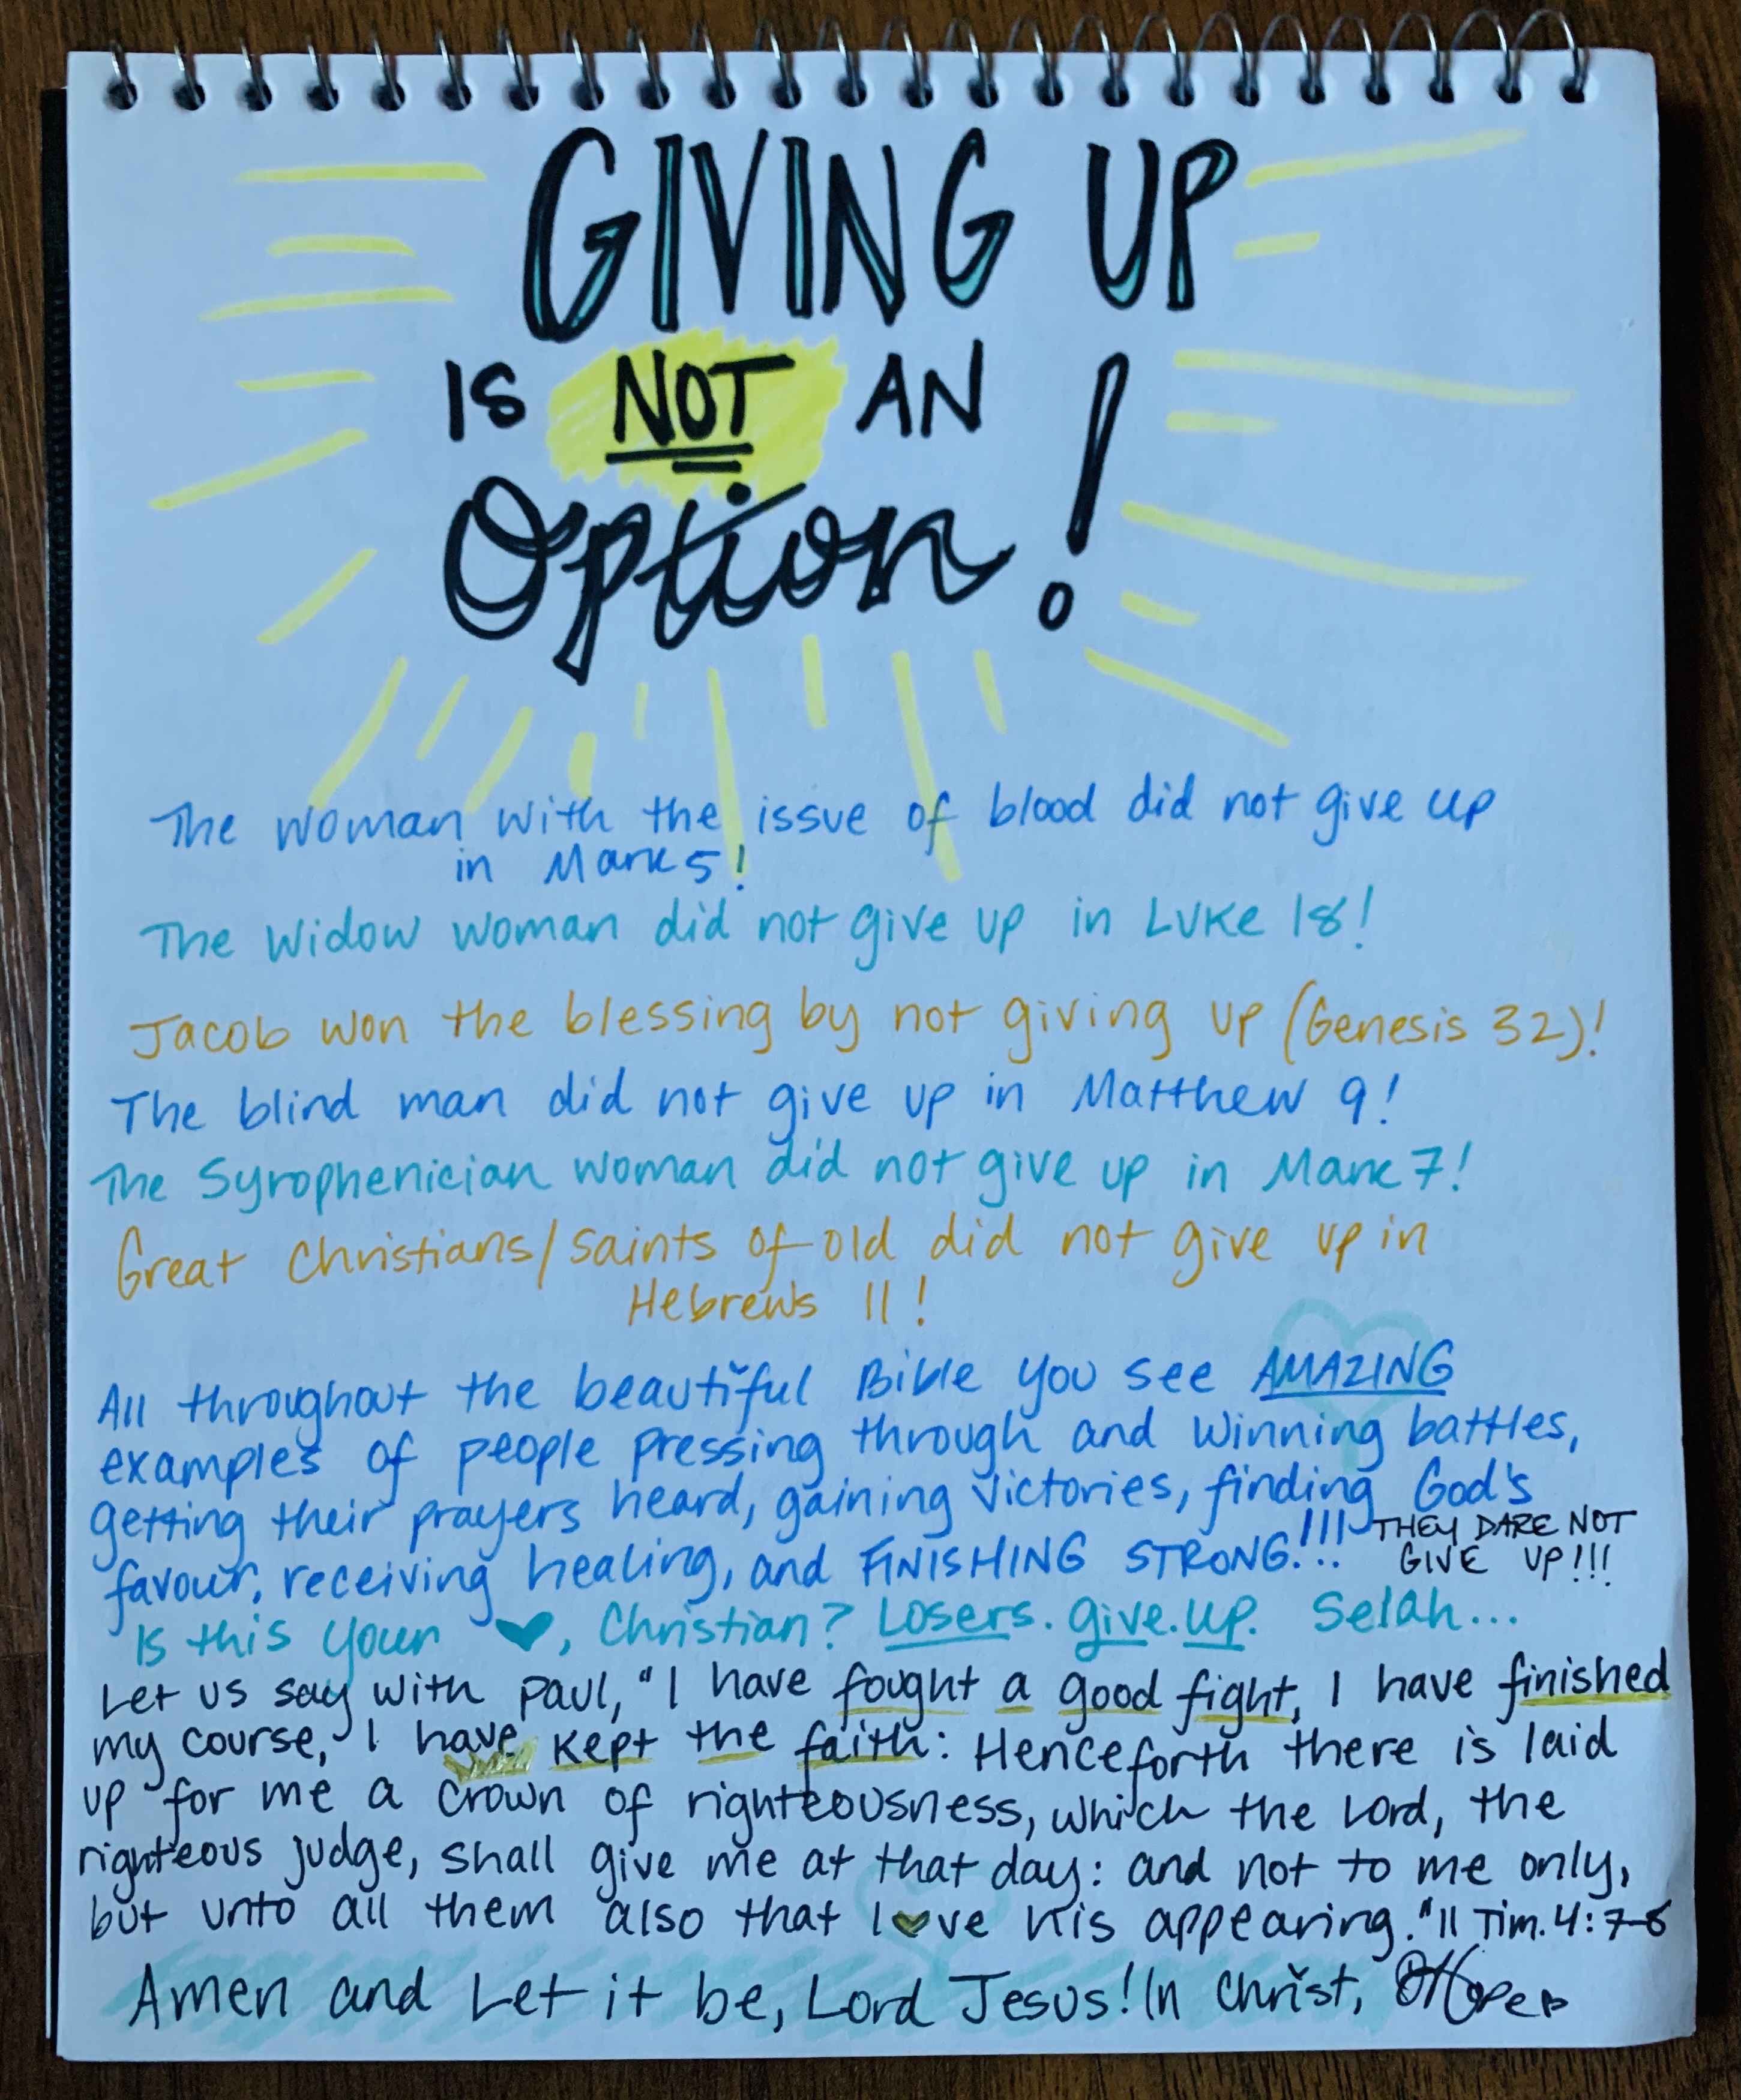 GIVING UP
IS NOT AN
Option!
The woman with the issue of blood did not give up
in Mark 5!
The widow woman did not give up in Luke 18!
Jacob won the blessing by not giving up (Genesis 32)!
The blind man did not give up in Matthew 9!
The Syrophenician woman did not give up in Mark 7!
Great Christians/saints of old did not give up in
Hebrews 11!
All throughout the beautiful Bible you see AMAZING
examples of people pressing through and winning battles,
getting their prayers heard, gaining victories, finding God's
favour, receiving healing, and FINISHING STRONG!!! THEY DARE NOT
GIVE UP!!!
Is this your ♥, Christian? Losers. give. up. Selah...
Let us say with Paul, "I have fought a good fight, I have finished
my course, I have kept the faith: Henceforth there is laid
up for me a crown of righteousness, which the Lord, the
righteous judge, shall give me at that day: and not to me only,
but unto all them also that l♥ve his appearing." II Tim. 4:7-8
Amen and Let it be, Lord Jesus! In Christ,